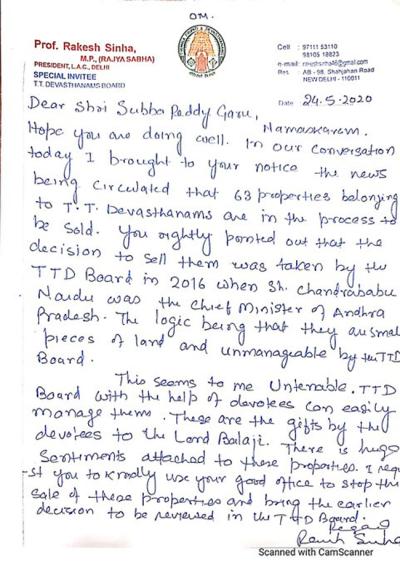 OM.
Prof. Rakesh Sinha,
M.P., (RAJYA SABHA)
PRESIDENT, L.A.C., DELHI
SPECIAL INVITEE
T.T. DEVASTHANAMS BOARD
Cell : 97111 53110
98105 18823
e-mail : rakeshsinha46@gmail.com
Res. AB - 98, Shahjahan Road
NEW DELHI - 110011
Date 24.5-2020
Dear Shri Subba Reddy Garu,
Namaskaram.
Hope you are doing well. In our conversation
today I brought to your notice the news
being circulated that 63 properties belonging
to T.T. Devasthanams are in the process to
be sold. You rightly pointed out that the
decision to sell them was taken by the
TTD Board in 2016 when Sh. Chandrababu
Naidu was the Chief Minister of Andhra
Pradesh. The logic being that they are small
pieces of land and unmanageable by the TTD
Board.
This seams to me Untenable. TTD
Board with the help of devotees can easily
manage them. These are the gifts by the
devotees to the Lord Balaji. There is huge
Sentiments attached to these properties. I reque-
st you to kindly use your good office to stop the
sale of these properties and bring the earlier
decision to be reviewed in the TTD Board.
Regard
Rakesh Sinha
Scanned with CamScanner